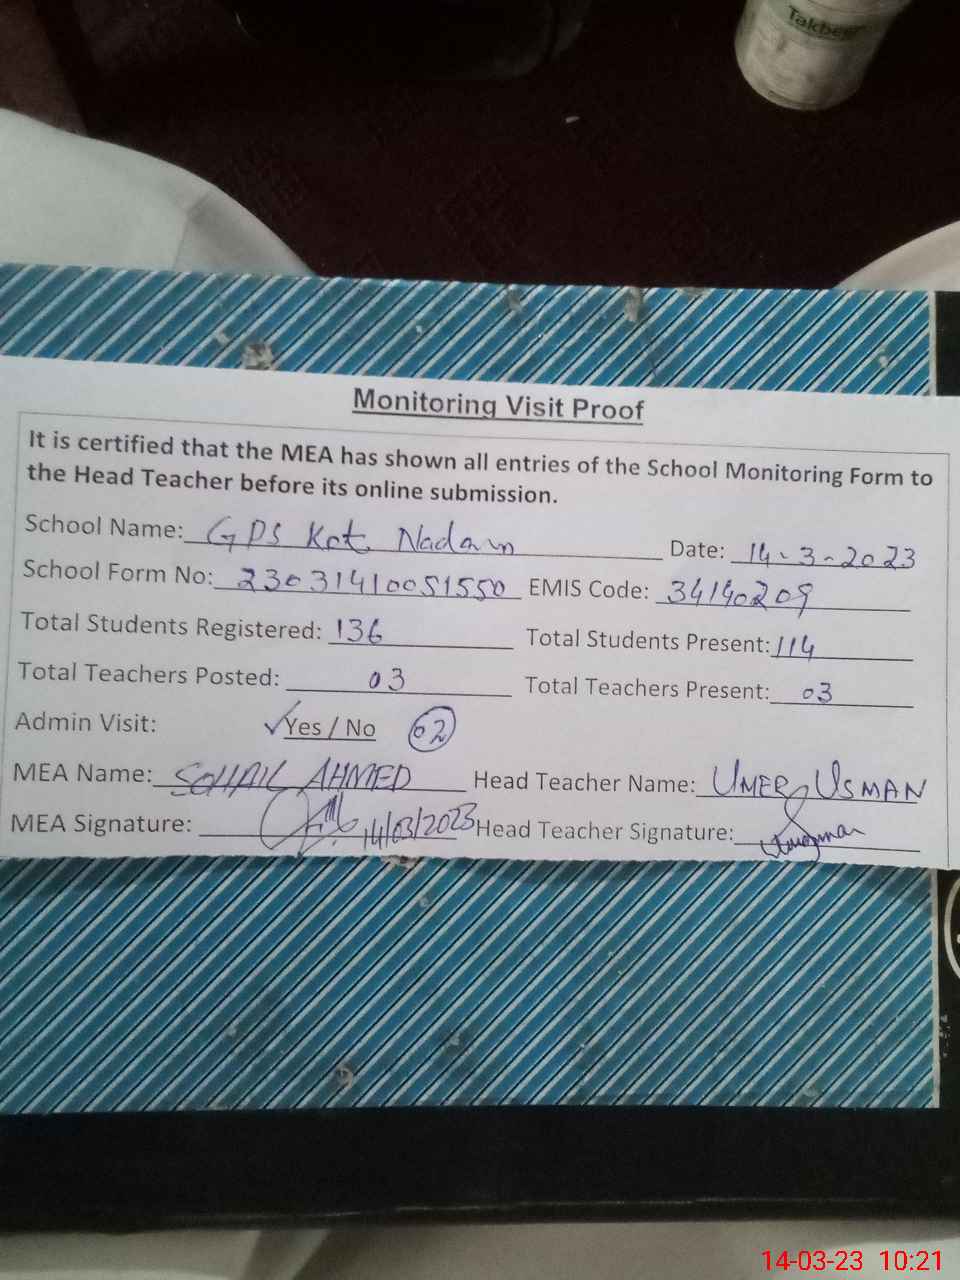 Takbeer
Monitoring Visit Proof
It is certified that the MEA has shown all entries of the School Monitoring Form to
the Head Teacher before its online submission.
School Name: GPS Kot Nadan Date: 14-3-2023
School Form No: 23031410051550 EMIS Code: 34140209
Total Students Registered: 136 Total Students Present: 114
Total Teachers Posted: 03 Total Teachers Present: 03
Admin Visit: ✓Yes / No 02
MEA Name: SOHAIL AHMED Head Teacher Name: UMER USMAN
MEA Signature: 14/03/2023 Head Teacher Signature:
14-03-23 10:21